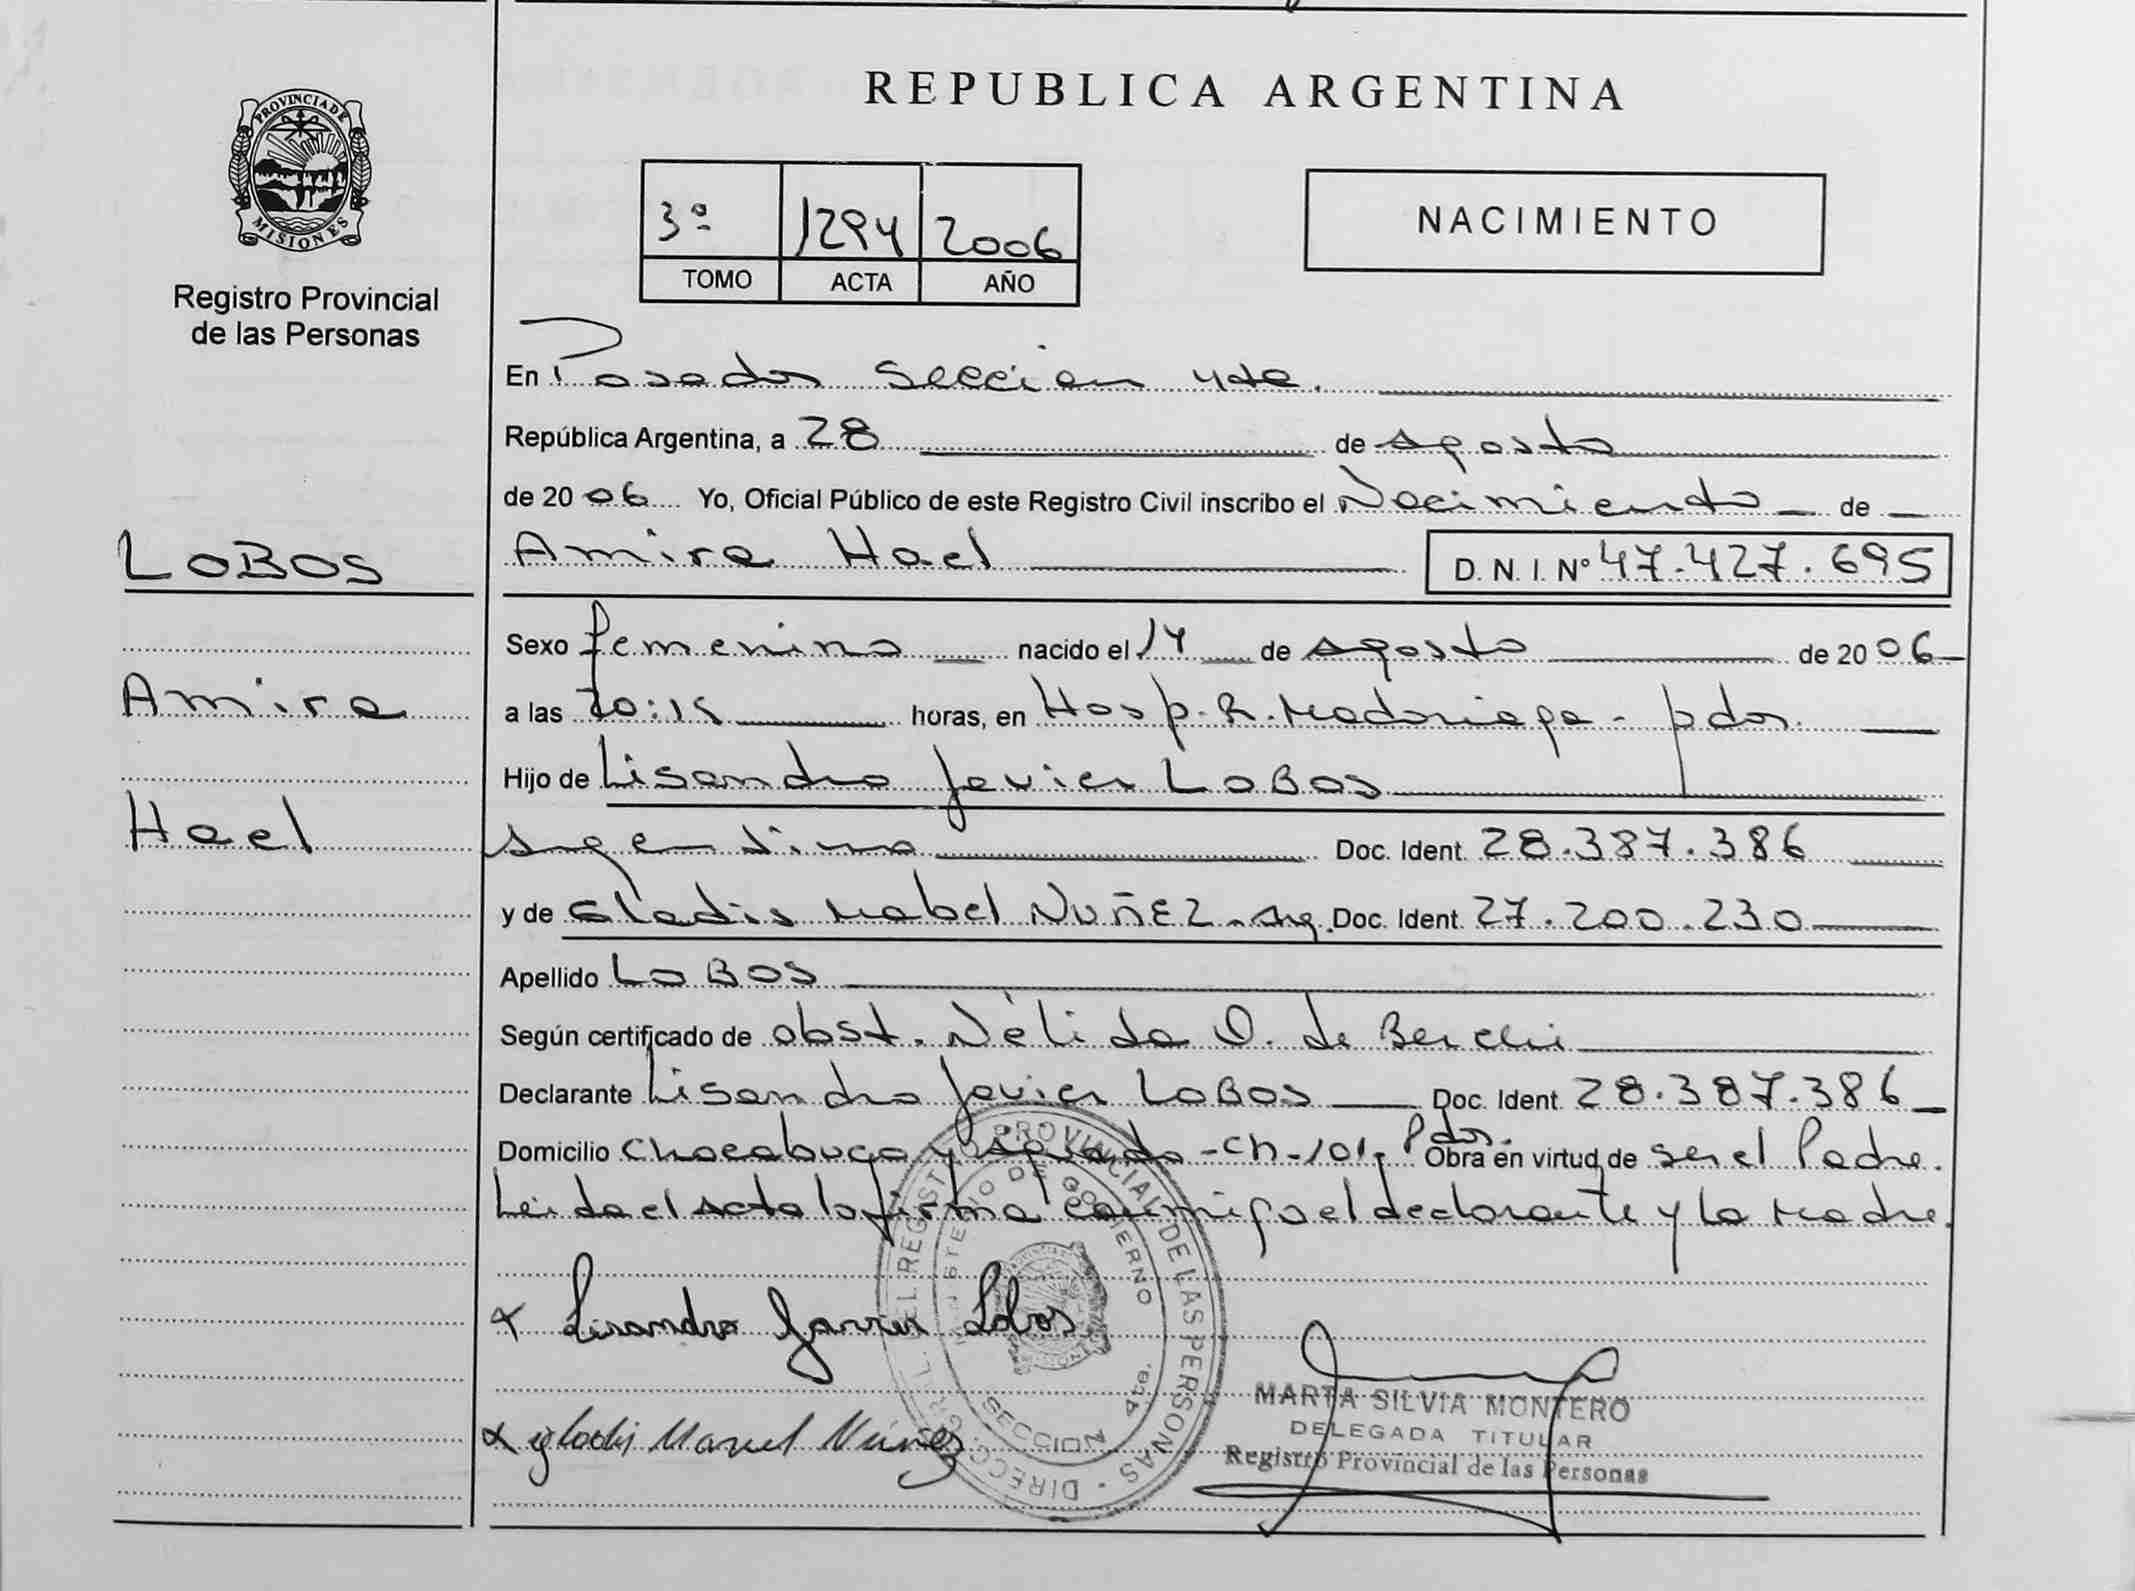 REPUBLICA ARGENTINA
PROVINCIA DE
MISIONES
Registro Provincial
de las Personas
3º 1294 2006
TOMO ACTA AÑO
NACIMIENTO
En Posadas Sección 4ta.
República Argentina, a 28 de Agosto
de 2006 Yo, Oficial Público de este Registro Civil inscribo el Nacimiento de
LOBOS
Amira Hael D. N. I. Nº 47.427.695
Sexo femenino nacido el 14 de Agosto de 2006
Amira
a las 20:15 horas, en Hosp. R. Madariaga - pdas.
Hijo de Lisandro Javier LOBOS
Hael
Argentino Doc. Ident. 28.387.386
y de Gladis Mabel NUÑEZ - Arg. Doc. Ident. 27.200.230
Apellido LOBOS
Según certificado de obst. Nélida O. de
Declarante Lisandro Javier LOBOS Doc. Ident. 28.387.386
Domicilio Chacabuco y - Ch - 101 - Pdas. Obra en virtud de ser el Padre.
Leida el Acta la firma conmigo el declarante y la Madre.
Lisandro Javier Lobos
Gladis Mavel Núñez
DIRECC. GRL. DEL REGISTRO PROVINCIAL DE LAS PERSONAS
MINISTERIO DE GOBIERNO
SECCION 4ta.
MARTA SILVIA MONTERO
DELEGADA TITULAR
Registro Provincial de las Personas